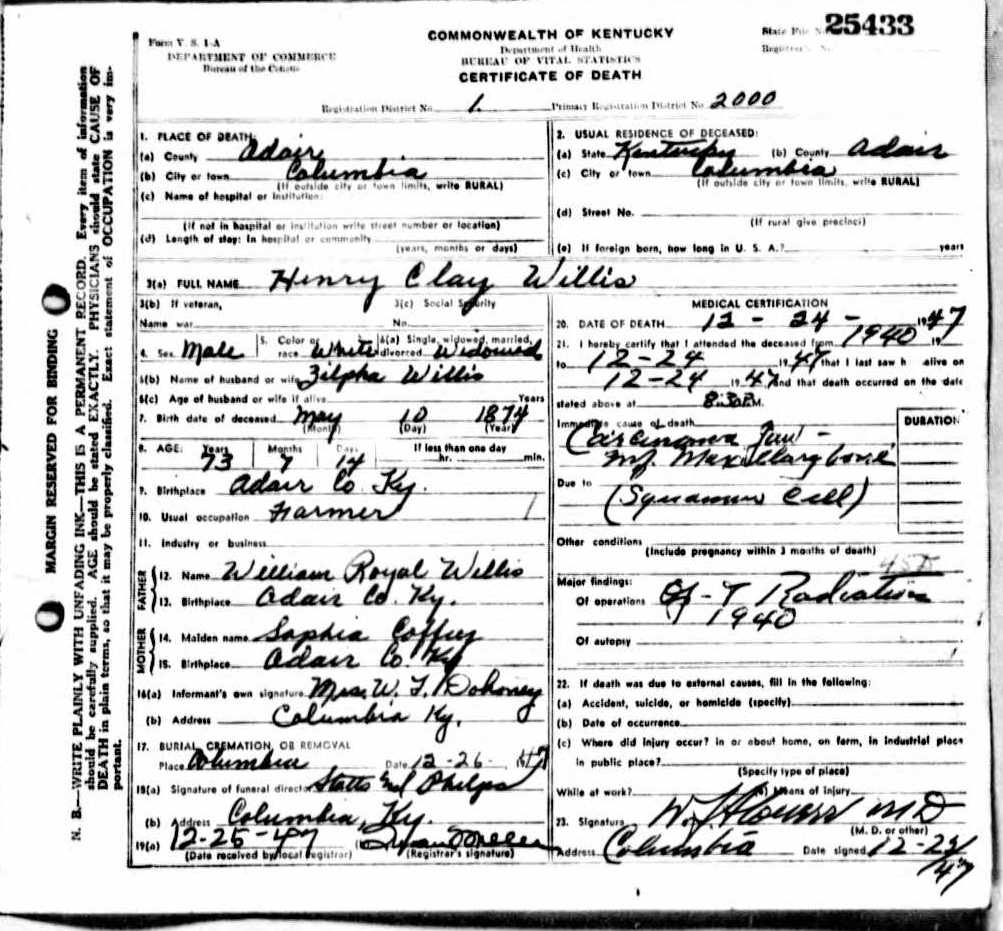 Form V. S. 1-A
DEPARTMENT OF COMMERCE
Bureau of the Census
COMMONWEALTH OF KENTUCKY
Department of Health
BUREAU OF VITAL STATISTICS
CERTIFICATE OF DEATH
State File No. 25433
Registrar's No.
Registration District No. 1. Primary Registration District No. 2000
MARGIN RESERVED FOR BINDING
N. B.—WRITE PLAINLY WITH UNFADING INK—THIS IS A PERMANENT RECORD. Every item of information
should be carefully supplied. AGE should be stated EXACTLY. PHYSICIANS should state CAUSE OF
DEATH in plain terms, so that it may be properly classified. Exact statement of OCCUPATION is very im-
portant.
1. PLACE OF DEATH:
(a) County Adair
(b) City or town Columbia
(If outside city or town limits, write RURAL)
(c) Name of hospital or institution:
(If not in hospital or institution write street number or location)
(d) Length of stay: In hospital or community
(years, months or days)
2. USUAL RESIDENCE OF DECEASED:
(a) State Kentucky (b) County Adair
(c) City or town Columbia
(If outside city or town limits, write RURAL)
(d) Street No.
(If rural give precinct)
(e) If foreign born, how long in U. S. A.? years
3(a) FULL NAME Henry Clay Willis
3(b) If veteran, 3(c) Social Security
Name war No.
4. Sex Male 5. Color or race White 6(a) Single, widowed, married, divorced Widowed
6(b) Name of husband or wife Zilpha Willis
6(c) Age of husband or wife if alive Years
7. Birth date of deceased May 10 1874
(Month) (Day) (Year)
8. AGE: Years Months Days If less than one day
73 7 14 hr. min.
9. Birthplace Adair Co Ky.
10. Usual occupation Farmer
11. Industry or business
FATHER
12. Name William Royal Willis
13. Birthplace Adair Co. Ky.
MOTHER
14. Maiden name Sophia Coffey
15. Birthplace Adair Co Ky
16(a) Informant's own signature Mrs. W. T. Dohoney
(b) Address Columbia Ky.
17. BURIAL, CREMATION, OR REMOVAL
Place Columbia Date 12-26- 1947
18(a) Signature of funeral director Stotts and Phelps
(b) Address Columbia, Ky.
19(a) 12-25-47 (b)
(Date received by local registrar) (Registrar's signature)
MEDICAL CERTIFICATION
20. DATE OF DEATH 12 - 24 - 1947
21. I hereby certify that I attended the deceased from 1940 19
to 12-24 1947 that I last saw h alive on
12-24 1947 and that death occurred on the date
stated above at 8:30 P.M.
Immediate cause of death DURATION
Carcinoma Jaw -
Maxillary bone
Due to (Squamous Cell)
Other conditions
(Include pregnancy within 3 months of death)
Major findings:
Of operations X-T Radiation
1940
Of autopsy
22. If death was due to external causes, fill in the following:
(a) Accident, suicide, or homicide (specify)
(b) Date of occurrence
(c) Where did injury occur? in or about home, on farm, in industrial place
in public place?
(Specify type of place)
While at work? (e) Means of injury
23. Signature W. J. Flowers MD
(M. D. or other)
Address Columbia Date signed 12-24
/47